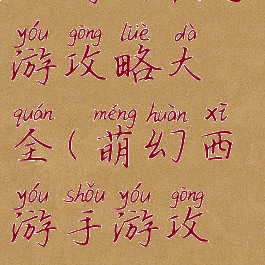 yóu gōng lüè dà
游攻略大
quán méng huàn xī
全(萌幻西
yóu shǒu yóu gōng
游手游攻